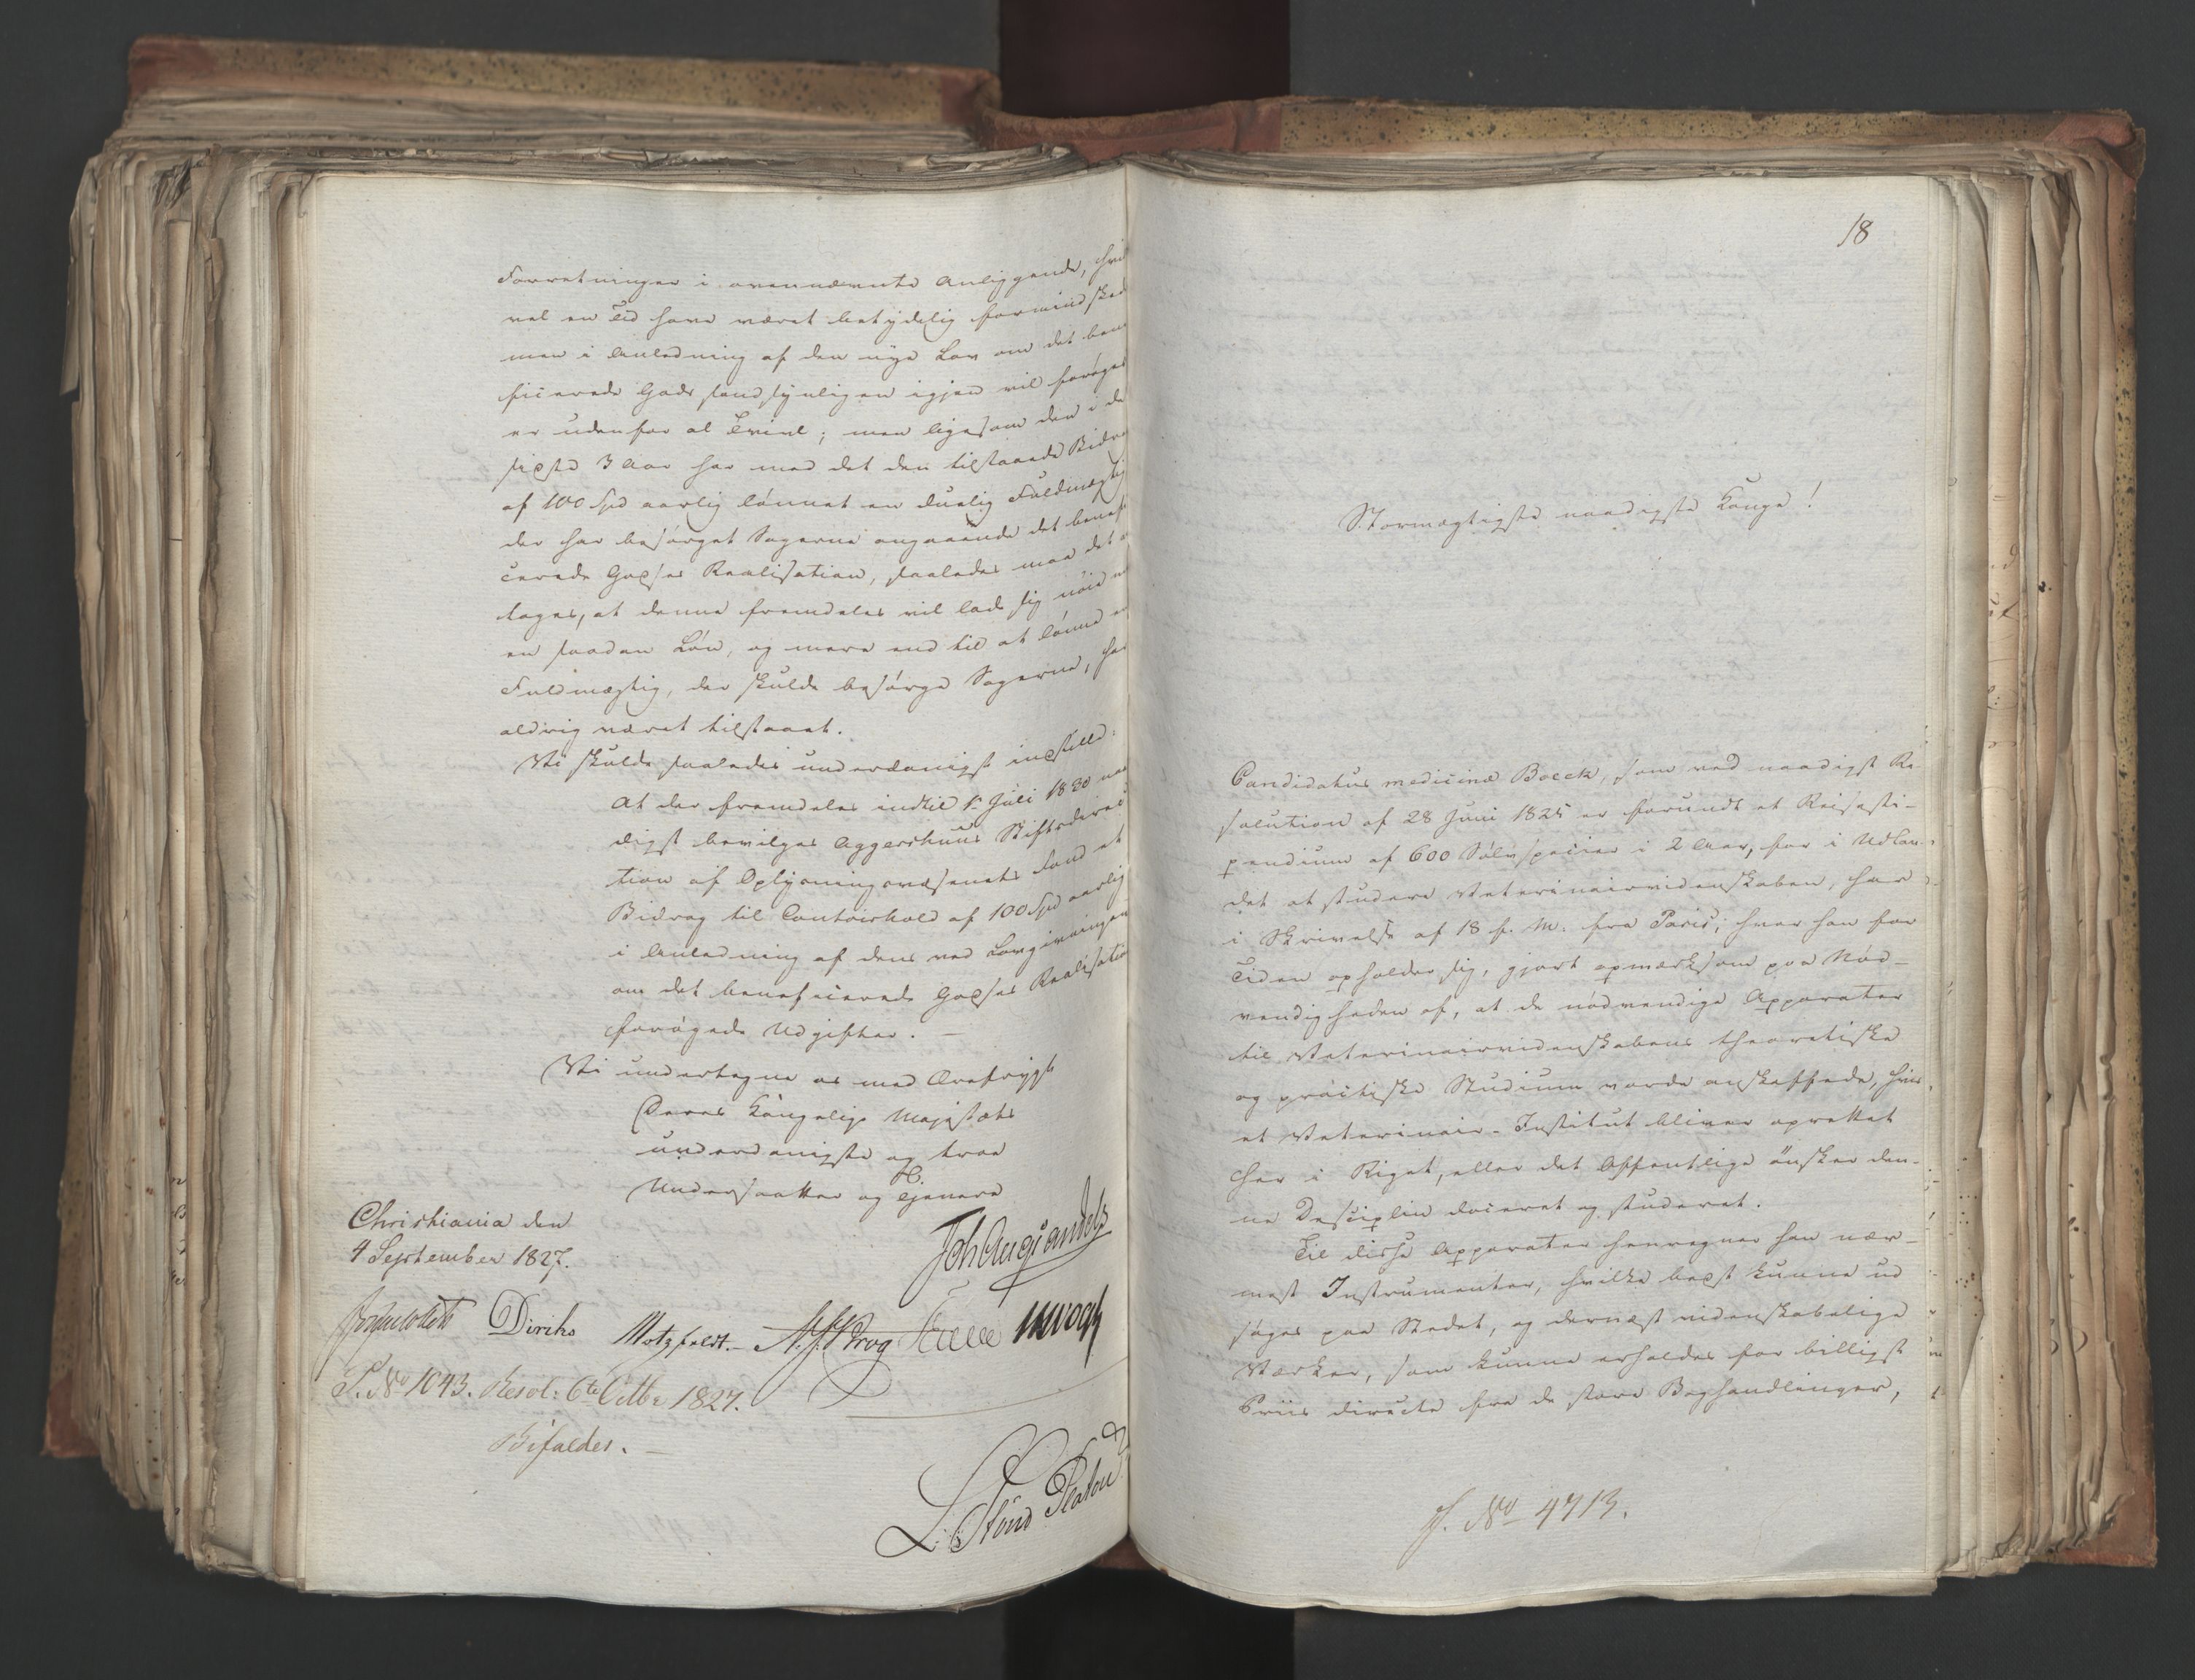 Forretninger i ovennævnte Anliggende, hvis
vel en Tid have været betydelig formindsked
men i Anledning af den nye Lov om det bene
ficerede Gods sandsynligen igjen vil forøges
er udenfor al Tvivl; men ligesom den i de
sidste 3 Aar har med det den tilstaaede Bidrag
af 100 Spd aarlig lønnet en duelig Fuldmægtig
der har besørget Sagerne angaaende det benefi
cerede Godses Realisation, saaledes maa det an
tages, at denne fremdeles vil lade sig nøie med
en saadan Løn, og mere end til at lønne en
Fuldmægtig, der skulde besørge Sagerne, har
aldrig været tilstaaet.
Vi skulde saaledes underdanigst indstille:
At der fremdeles indtil 1ste Juli 1830 naa
digst bevilges Aggershuus Stiftsdirec
tion af Oplysningsvæsenets Fond et
Bidrag til Contoirhold af 100 Spd aarlig
i Anledning af dens ved Lovgivningen
om det beneficerede Godses Realisation
forøgede Udgifter. —
Vi undertegne os med Ærefrygt
Deres Kongelige Majestæts
underdanigste og troe
Undersaatter og Tjenere
Christiania den
4 September 1827.
Joh Aug Sandels
Diriks Motzfeldt. — Krog Treschow Vogt
P. No 1043. Resol: 6te Octbr 1827.
Bifaldes. —
18
Stormægtigste naadigste Konge!
Candidatus medicinæ Boeck, som ved naadigst Re
solution af 28 Juni 1825 er forundt et Reisesti-
pendium af 600 Sølvspecier i 2 Aar, for i Udlan-
det at studere Veterinairvidenskaben, har
i Skrivelse af 18 f. M. fra Paris, hvor han for
Tiden opholder sig, gjort opmærksom paa Nød-
vendigheden af, at de nødvendige Apparater
til Veterinairvidenskabens theoretiske
og practiske Studium vorde anskaffede, hvis
et Veterinair-Institut bliver oprettet
her i Riget, eller det Offentlige ønsker den-
ne Desciplin doceret og studeret.
Til disse Apparater henregner han nær-
mest Instrumenter, hvilke bedst kunne ud
søges paa Stedet, og dernæst videnskabelige
Værker, som kunne erholdes for billigst
Priis directe fra de store Boghandlinger,
J. No 4713.